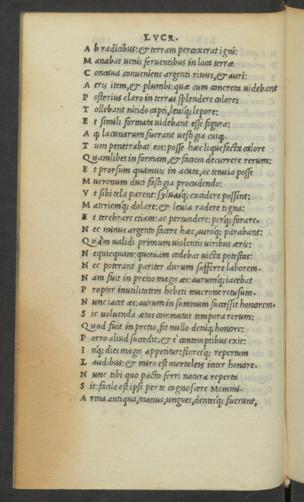 LVCR.
A b radicibus: & terram percoxerat igni:
M anabat venis ferventibus in loca terræ
C oncava conveniens argenti rivus, & auri:
A eris item, & plumbi: quæ cum concreta videbant
P osterius claro in terras splendere colore:
T ollebant nitido capti, leviq; lepore:
E t simili formata videbant esse figura;
A tq; lacunarum fuerant vestigia cuiq.
T um penetrabat eos: posse hæc liquefacta calore
Q uamlibet in formam, & faciem decurrere rerum:
E t prorsum quamvis in acuta, ac tenuia posse
M ucronum duci fastigia procudendo:
V t sibi tela parent: sylvasq; excidere possint:
M ateriemq; dolare: & levia radere tigna:
E t terebrare etiam: ac pertundere: perq; forare.
N ec minus argento facere hæc, auroq; parabant:
Q uàm validi primum violentis viribus æris:
N equicquam: quoniam cedebat victa potestas:
N ec poterant pariter durum sufferre laborem.
N am fuit in pretio magis æs: aurumq; iacebat
P ropter inutilitatem hebeti mucrone retusum.
N unc iacet æs: aurum in summum successit honorem.
S ic volvenda ætas commutat tempora rerum:
Q uod fuit in pretio, fit nullo deniq; honore:
P orro aliud succedit, & è contemptibus exit:
I nq; dies magis appetitur: floretq; repertum
L audibus: & miro est mortaleis inter honore.
N unc tibi quo pacto ferri natura reperta
S it: facile est ipsi per te cognoscere Memmi.
A rma antiqua, manus, ungues, dentesq; fuerunt,